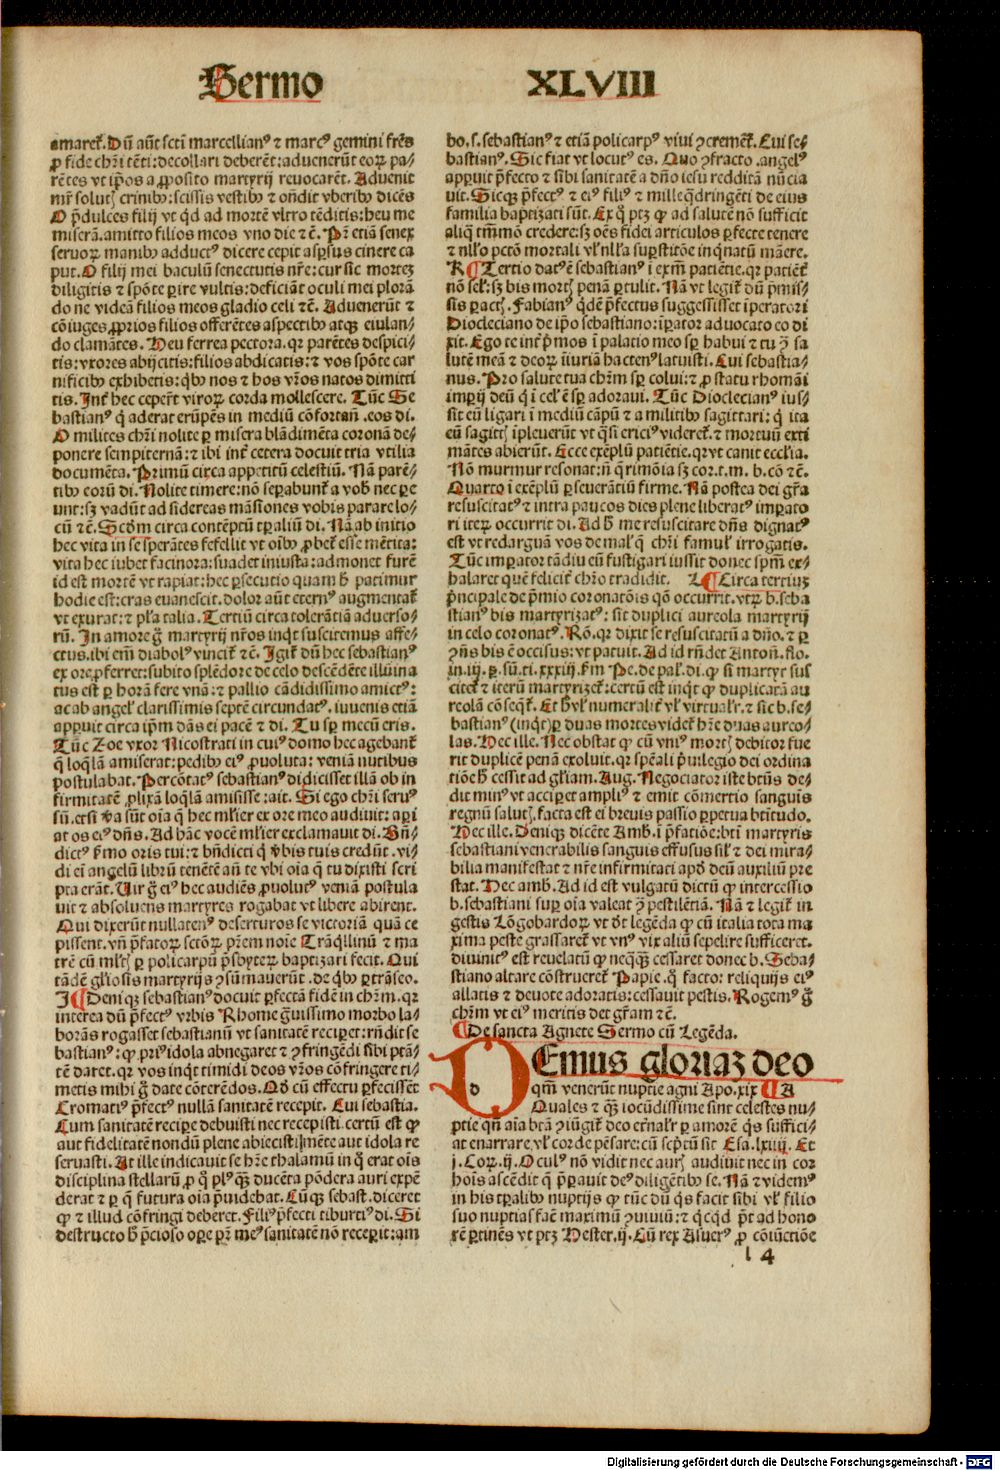 Sermo XLVIII
amaret̄. Dū aūt scti marcellian⁹ ⁊ marc⁹ gemini frēs
ꝓ fide chr̄i tēti: decollari deberēt: aduenerūt eoꝝ pa⸗
rētes vt ip̄os a ꝓposito martyrij reuocarēt. Aduenit
crinibꝰ: scissis vestibꝰ ⁊ on̄dit vberibꝰ dicēs
O p̄dulces filij vt qd ad mortē vltro tēditis: heu me
miserā. amitto filios meos vno die ⁊ cē. Pr̄ etiā senex
seruoꝝ manibꝰ adduct⁹ dicere cepit asp̄sus cinere ca
put. O filij mei baculū senectutis nr̄e: cur sic mortez
diligitis ⁊ spōte ꝑire vultis: deficiāt oculi mei plorā
do ne videā filios meos gladio celi ⁊ cē. Aduenerūt ⁊
cōiuges ꝓprios filios offerētes aspectibꝰ atqꝫ eiulan⸗
do clamātes. Heu ferrea pectora. qr parētes despici⸗
tis: vxores abijcitis: filios abdicatis: ⁊ vos spōte car
nificibꝰ exhibetis: qbꝰ nos ⁊ hos vr̄os natos dimitti
tis. Int̄ hec ceper̄t viroꝝ corda mollescere. Tūc Se
bastian⁹ q̇ aderat erūpēs in mediū cōfortan̄. eos di.
O milites chr̄i nolite ꝑ misera blādimēta coronā de⸗
ponere sempiternā: ⁊ ibi int̄ cetera docuit tria vtilia
documēta. Primū circa appetitū celestiū. Nā parē⸗
tibꝰ eorū di. Nolite timere: nō seꝑabunt̄ a vob̄ nec ꝑe
unt: sꝫ vadūt ad sidereas māsiones vobis parare lo⸗
cū ⁊ cē. Scd̄m circa contēptū tꝑaliū di. Nā ab initio
hec vita in se sperātes fefellit vt oībꝰ ꝓbet̄ esse mētita:
vita hec iubet facinora: suadet iniusta: admonet furē
id est mortē vt rapiat: hec ꝑsecutio quam h̄ patimur
hodie est: cras euanescit. dolor aūt etern⁹ augmentat̄
vt exurat: ⁊ pl̄a talia. Tertiū circa tolerātiā aduerso⸗
rū. In amore g̊ martyrij nr̄os inqt suscitemus affe⸗
ctus. ibi em̄ diabol⁹ vincit̄ ⁊ cē. Igit̄ dū hec sebastian⁹
ex ore ꝓferret: subito splēdore de celo descēdēte illūina
tus est ꝑ horā fere vnā: ⁊ pallio cādidissimo amict⁹:
ac ab angel̓ clarissimis septē circundat⁹. iuuenis etiā
apꝑuit circa ip̄m dās ei pacē ⁊ di. Tu sꝑ mecū eris.
Tūc Zoe vxor Nicostrati in cui⁹ domo hec agebant̄
q̄ loq̄lā amiserat: pedibꝰ ei⁹ ꝓuoluta: veniā nutibus
postulabat. Percōtat⁹ sebastian⁹ didicisset illā ob in
firmitatē ꝓlixā loq̄lā amisisse: ait. Si ego chr̄i seru⁹
sū. etsi v̄a sūt oīa q̄ hec ml̓ier ex ore meo audiuit: aꝑi
at os ei⁹ dn̄s. Ad hāc vocē ml̓ier exclamauit di. Bn̄⸗
dict⁹ s̓mo oris tui: ⁊ bn̄dicti q̇ v̓bis tuis credūt. vi⸗
di em̄ angelū librū tenētē an̄ te vbi oīa q̄ tu dixisti scri
pta erāt. Uir g̊ ei⁹ hec audiēs ꝓuolut⁹ veniā postula
uit ⁊ absoluens martyres rogabat vt libere abirent.
Qui dixerūt nullaten⁹ deserturos se victoriā quā ce
pissent. vn̄ p̄fatoꝝ sctōꝝ pr̄em noīe Trāq̇llinū ⁊ ma
trē cū ml̓tꝭ ꝑ policarpū p̄sbyteꝝ baptizari fecit. Qui
tādē gl̓iosis martyrijs ꝯsūmauerūt. de qbꝰ ꝑtrāseo.
I Deniqꝫ sebastian⁹ docuit ꝑfectā fidē in chr̄m. qr
interea dū p̄fect⁹ vrbis Rhome g̊uissimo morbo la⸗
borās rogasset sebastianū vt sanitatē reciꝑet: rn̄dit se
bastian⁹: ꝙ pri⁹ idola abnegaret ⁊ ꝯfringēdi sibi ptā⸗
tē daret. qr vos inqt timidi deos vr̄os cōfringere ti⸗
metis mihi g̊ date cōterēdos. Qd̓ cū effectu ꝑfecissēt
Cromati⁹ p̄fect⁹ nullā sanitatē recepit. Cui sebastia.
Cum sanitatē reciꝑe debuisti nec recepisti. certū est ꝙ
aut fidelitatē nondū plene abiecisti ī mēte aut idola re
seruasti. At ille indicauit se hr̄e thalamū in q̇ erat oīs
disciplina stellarū ꝓ q̇ pl⁹qꝫ ducēta pōdera auri expē
derat ⁊ ꝑ q̄ futura oīa p̄uidebat. Cūqꝫ sebast. diceret
ꝙ ⁊ illud cōfringi deberet. Fili⁹ p̄fecti tiburti⁹ di. Si
destructo h̄ p̄cioso oꝑe pr̄ me⁹ sanitatē nō receperit: am
bo. s. sebastian⁹ ⁊ etiā policarp⁹ viui ꝯcremēt̄. Cui se⸗
bastian⁹. Sic fiat vt locut⁹ es. Quo ꝯfracto. angel⁹
apꝑuit p̄fecto ⁊ sibi sanitatē a dn̄o iesu redditā nūcia
uit. Sicqꝫ p̄fect⁹ ⁊ ei⁹ fili⁹ ⁊ milleq̇dringēti de eius
familia baptizati sūt. Ex q̇ ptꝫ ꝙ ad salutē nō sufficit
aliq̇ tm̄mō credere: sꝫ oēs fidei articulos ꝑfecte tenere
⁊ nll̓o pctō mortali vl̓ nll̓a suꝑstitiōe inq̇natū māere.
K Tertio dat⁹ ē sebastian⁹ ī exm̄ patiētie. qr patiēt̄
nō sel̓: sꝫ bis mortꝭ penā ꝑtulit. Nā vt legit̄ dū p̄mis⸗
sis ꝑactꝭ. Fabian⁹ q̇dē p̄fectus suggessisset īperatori
Diocleciano de ip̄o sebastiano: īꝑator aduocato eo di
xit. Ego te int̄ p̄mos ī palatio meo sꝑ habui ⁊ tu ꝯ̄ sa
lutē meā ⁊ deoꝝ iniuriā hacten⁹ latuisti. Cui sebastia⸗
nus. Pro salute tua chr̄m sꝑ colui: ⁊ ꝓ statu rhomāi
imꝑij deū q̇ ī cel̓ ē sꝑ adoraui. Tūc Dioclecian⁹ ius⸗
sit eū ligari ī mediū cāpū ⁊ a militibꝰ sagittari: q̇ ita
eū sagittꝭ īpleuerūt vt q̇si erici⁹ videret̄. ⁊ mortuū exti
mātes abierūt. Ecce exēplū patiētie. qr vt canit ecclīa.
Nō murmur resonat: n̄ q̄rimōia sꝫ cor. t. m. b. cō ⁊ cē.
Quarto ī exēplū ꝑseuerātiū firme. Nā postea dei gr̄a
resuscitat⁹ ⁊ intra paucos dies plene liberat⁹ imꝑato
ri iteꝝ occurrit di. Ad h̄ me resuscitare dn̄s dignat⁹
est vt redarguā vos de mal̓ q̄ chr̄i famul̓ irrogatis.
Tūc imꝑator tādiu eū fustigari iussit donec spm̄ ex⸗
halaret quē felicit̄ chr̄o tradidit. L Circa tertiuz
p̄ncipale de p̄mio coronatōis qō occurrit. vtꝝ b. seba
stian⁹ bis martyrizat⁹: sit duplici aureola martyrij
in celo coronat⁹. Rō. qr dixit se resuscitatū a dn̄o. ⁊ ꝑ
ꝯn̄s bis ē occisus: vt patuit. Ad id rn̄det Antoń. flo.
in. iij. ꝑ. sū. ti. xxxiij. s̓m Pe. de pal̓. di. ꝙ si martyr sus
citet̄ ⁊ iterū martyrizet̄: certū est inqt ꝙ duplicatā au
reolā cōseqt̄. Et h̄ vl̓ numeralit̄ vl̓ virtualr̄. ⁊ sic b. se⸗
bastian⁹ (inqt) ꝑ duas mortes videt̄ hr̄e duas aureo⸗
las. Hec ille. Nec obstat ꝙ cū vni⁹ mortꝭ debitor fue
rit duplicē penā exoluit. qr spēali p̄uilegio dei ordina
tiōe h̄ cessit ad gl̓iam. Aug. Negociator iste btūs de⸗
dit min⁹ vt acciꝑet ampli⁹ ⁊ emit cōmertio sanguis
regnū salutꝭ. facta est ei breuis passio ꝑpetua btitudo.
Hec ille. Deniqꝫ dicēte Amb. ī p̄fatiōe: bti martyris
sebastiani venerabilis sanguis effusus sil̓ ⁊ dei mira⸗
bilia manifestat ⁊ nr̄e infirmitati apd̓ deū auxiliū pre
stat. Hec amb. Ad id est vulgatū dictū ꝙ intercessio
b. sebastiani suꝑ oīa valeat ꝯ̄ pestilētiā. Nā ⁊ legit̄ in
gestis Lōgobardoꝝ vt dt̄ legēda ꝙ cū italia tota ma
xima peste grassaret̄ vt vn⁹ vix aliū sepelire sufficeret.
diuinit⁹ est reuelatū ꝙ neq̇qꝫ cessaret donec b. Seba⸗
stiano altare cōstrueret̄ Papie. q̇ facto: reliquijs ei⁹
allatis ⁊ deuote adoratis: cessauit pestis. Rogem⁹ g̊
chr̄m vt ei⁹ meritis det gr̄am ⁊ cē.
De sancta Agnete Sermo cū Legēda.
d Emus gloriaz deo
qm̄ venerūt nuptie agni Apo. xix A
Quales ⁊ qꝫ iocūdissime sint celestes nu⸗
ptie qn̄ aīa btā ꝯiūgit̄ deo et̓nalr̄ ꝑ amorē q̇s suffici⸗
at enarrare vl̓ corde pēsare: cū scp̄tū sit Esa. lxiiij. Et
j. Coꝝ. ij. Ocul⁹ nō vidit nec aurꝭ audiuit nec in cor
hois ascēdit q̄ p̄parauit de⁹ diligētibꝰ se. Nā ⁊ videm⁹
in his tꝑalibꝰ nuptijs ꝙ tūc dū q̇s facit sibi vl̓ filio
suo nuptias facē maximū ꝯuiuiū: ⁊ qcqd p̄t ad hono
rē ꝑtinēs vt ptꝫ Hester. ij. Cū rex Asuer⁹ ꝓ cōiūctiōe
l 4
Digitalisierung gefördert durch die Deutsche Forschungsgemeinschaft - DFG